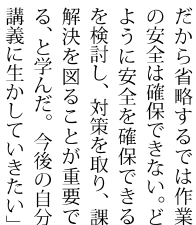 だから省略するでは作業
の安全は確保できない。ど
ように安全を確保できる
を検討し、対策を取り、課
解決を図ることが重要で
る、と学んだ。今後の自分
講義に生かしていきたい」